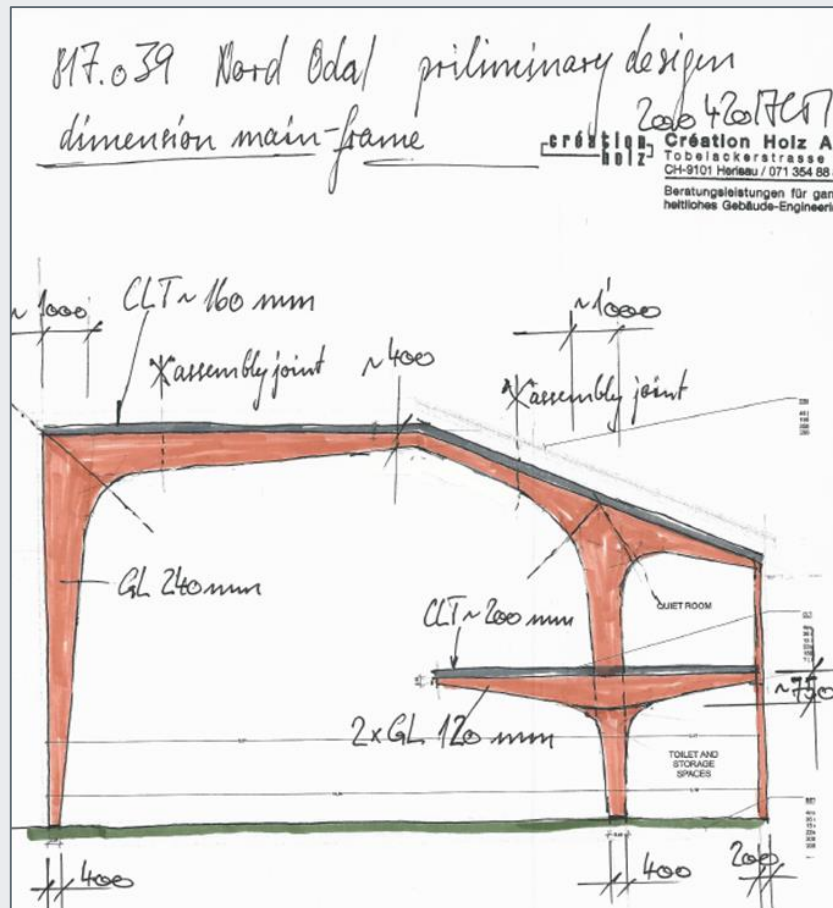 817.039 Nord Odal priliminary desigen
dimension main-frame
création holz
Création Holz A
Tobelackerstrasse
CH-9101 Herisau / 071 354 88
Beratungsleistungen für gan
heitliches Gebäude-Engineeri
~ 1000
CLT ~ 160 mm
~1'000
assembly joint
~400
assembly joint
GL 240 mm
QUIET ROOM
CLT ~ 200 mm
~750
2x GL 120 mm
TOILET AND
STORAGE
SPACES
400
400
200